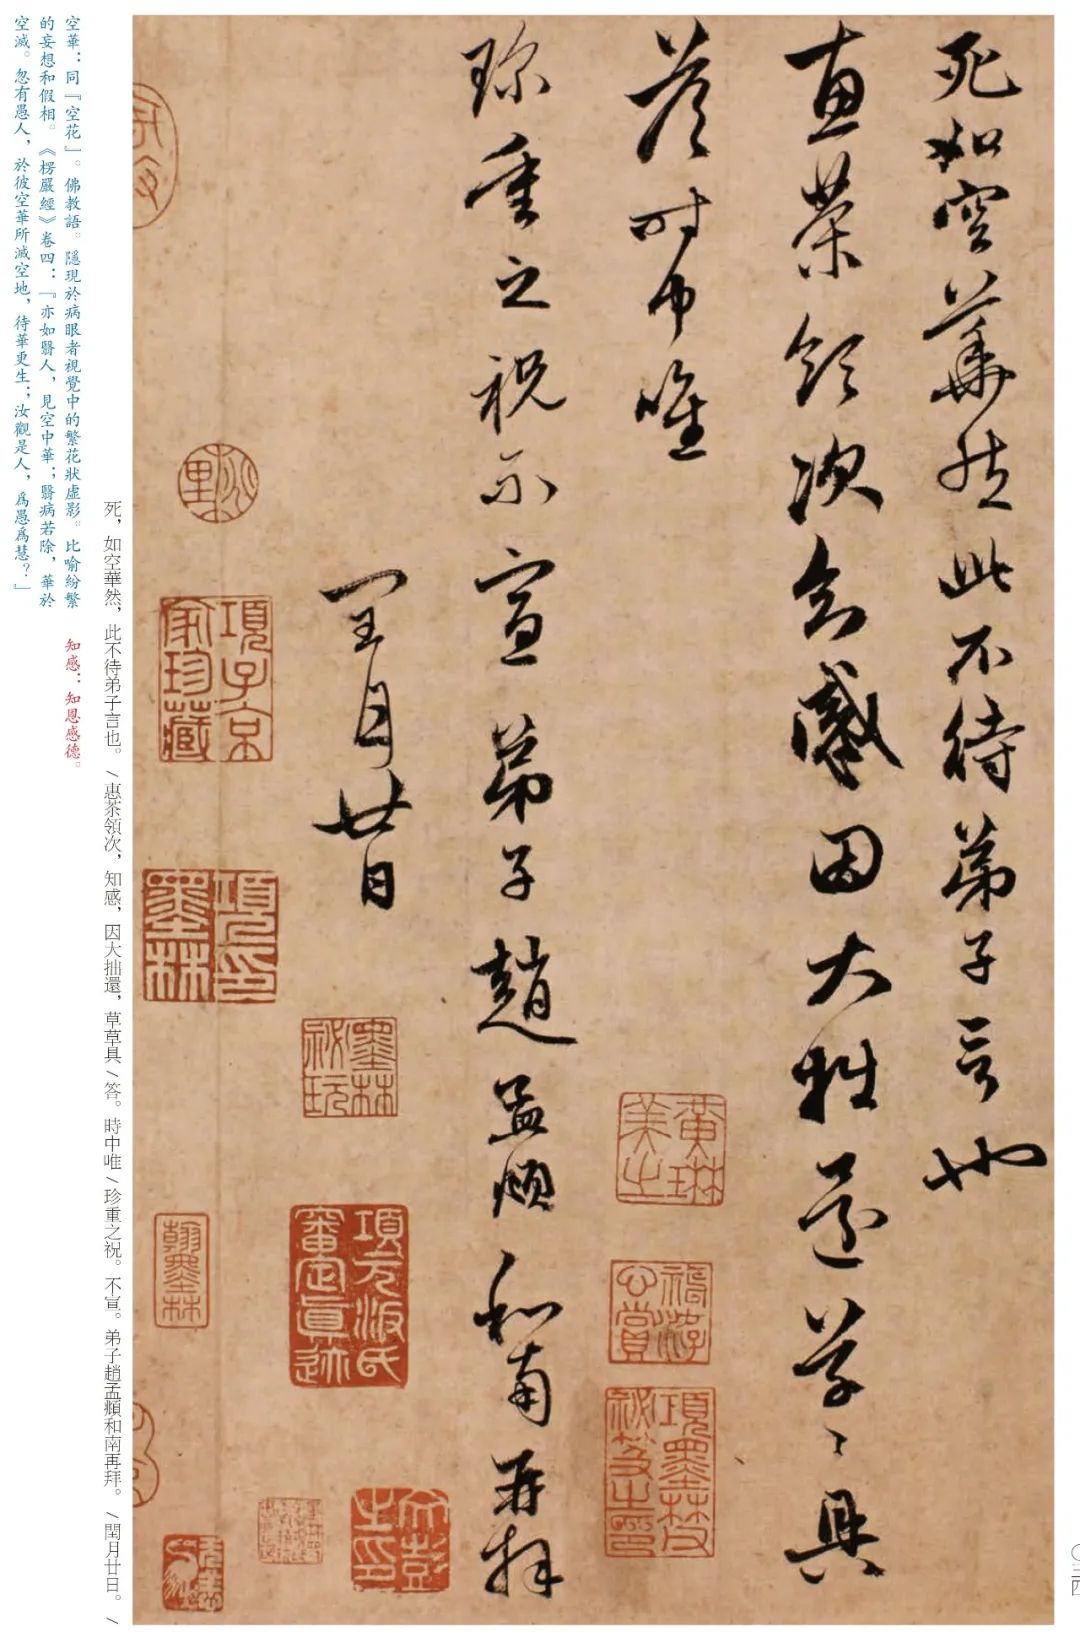 死如空華然此不待弟子言也
惠茶領次知感因大拙還草〻具
答時中唯
珍重之祝不宣弟子趙孟頫和南再拜
閏月廿日
黃琳美之
項墨林父祕笈之印
墨林祕玩
項元汴氏審定真迹
項子京家珍藏
桃里
死，如空華然，此不待弟子言也。/惠茶領次，知感，因大拙還，草草具/答。時中唯/珍重之祝。不宣。弟子趙孟頫和南再拜。/閏月廿日。/
空華：同『空花』。佛教語。隱現於病眼者視覺中的繁花狀虛影。比喻紛繁
的妄想和假相。《楞嚴經》卷四：『亦如翳人，見空中華；翳病若除，華於
空滅。忽有愚人，於彼空華所滅空地，待華更生；汝觀是人，爲愚爲慧？』
知感：知恩感德。
〇三四